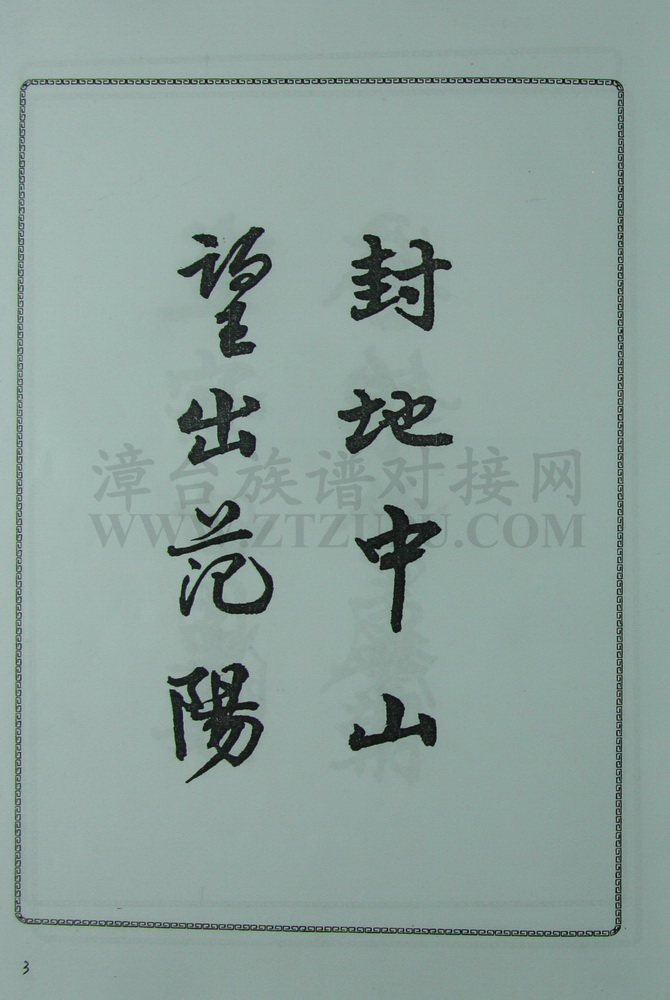 封地中山
望出范陽
漳台族谱对接网
WWW.ZTZUPU.COM
3